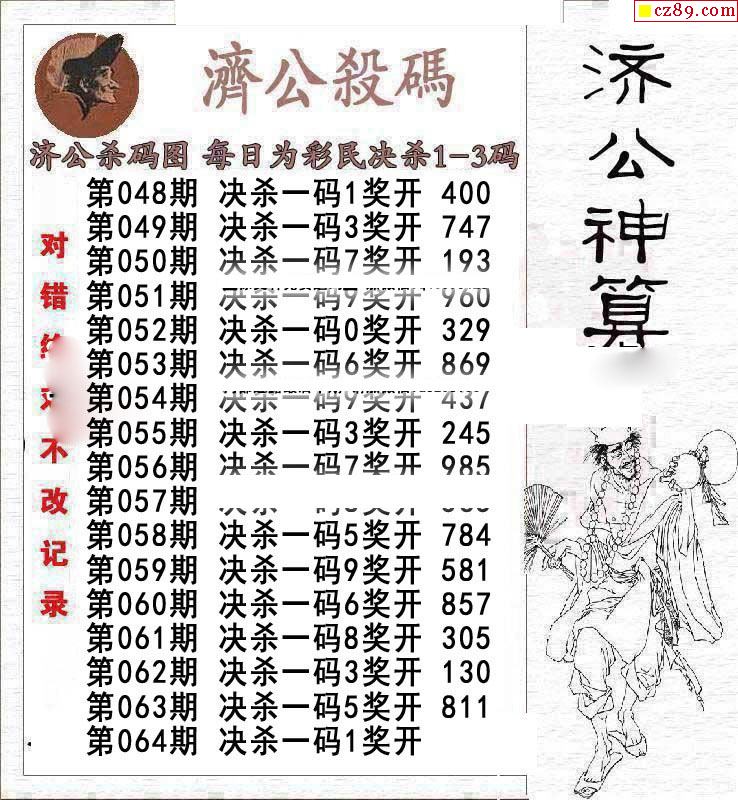 cz89.com
濟公殺碼
济公杀码图 每日为彩民决杀1-3码
第048期 决杀一码1奖开 400
第049期 决杀一码3奖开 747
第050期 决杀一码7奖开 193
第051期 决杀一码9奖开 960
第052期 决杀一码0奖开 329
第053期 决杀一码6奖开 869
第054期 决杀一码9奖开 437
第055期 决杀一码3奖开 245
第056期 决杀一码7奖开 985
第057期
第058期 决杀一码5奖开 784
第059期 决杀一码9奖开 581
第060期 决杀一码6奖开 857
第061期 决杀一码8奖开 305
第062期 决杀一码3奖开 130
第063期 决杀一码5奖开 811
第064期 决杀一码1奖开
对错
不改记录
济公神算